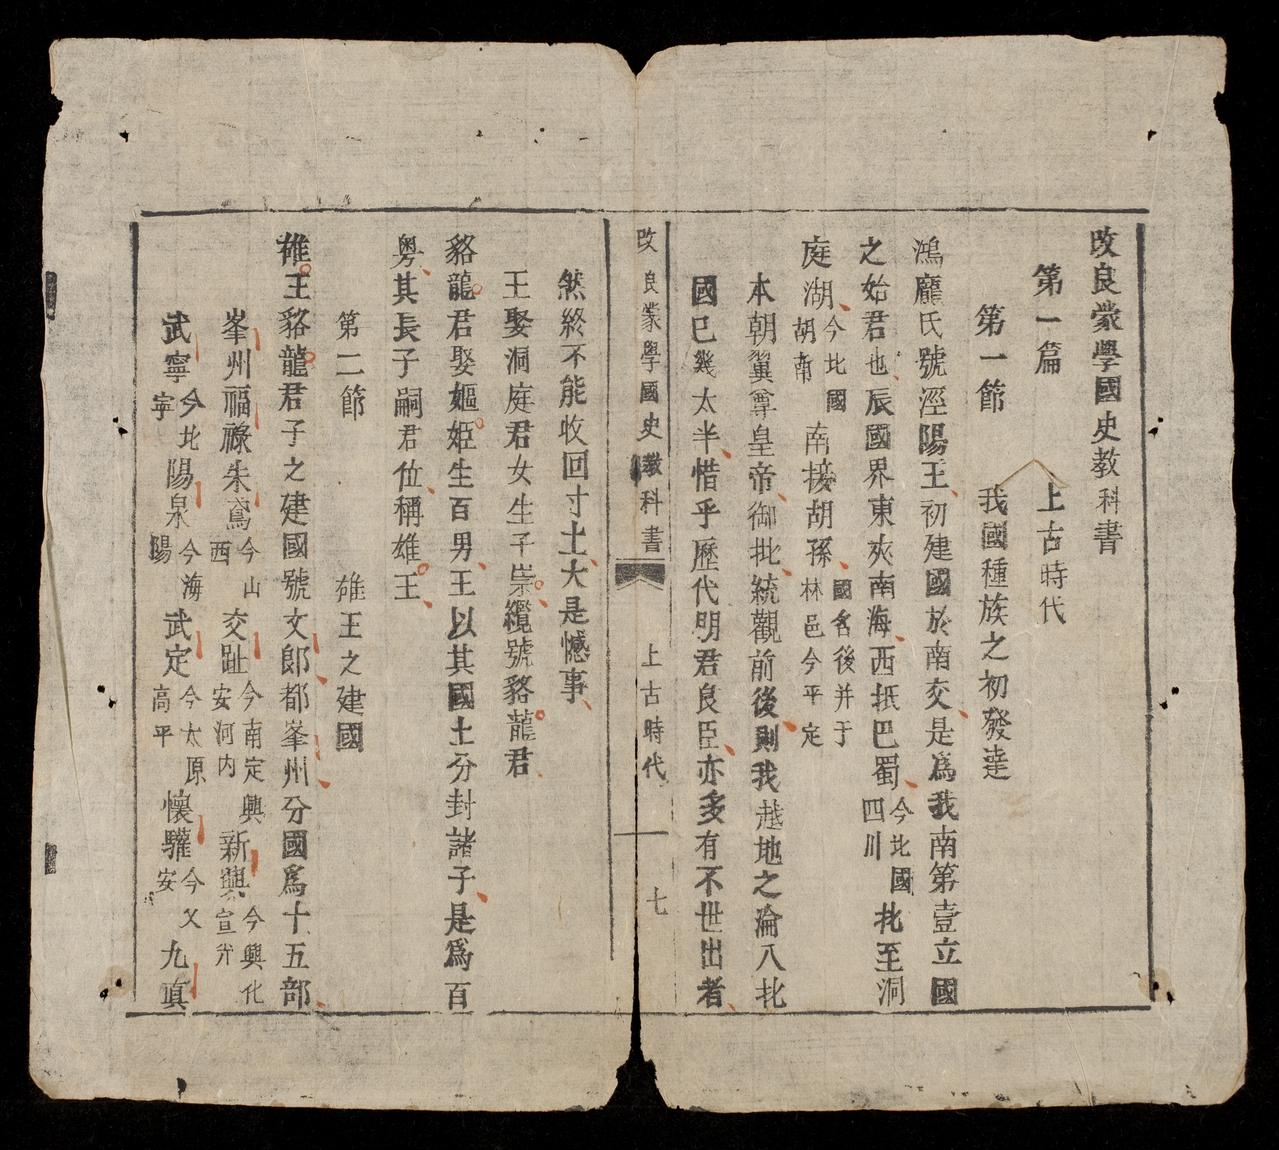 改良蒙學國史教科書
第一篇 上古時代
第一節 我國種族之初發達
鴻龐氏號涇陽王初建國於南交是爲我南第壹立國
之始君也辰國界東夾南海西抵巴蜀今北國四川北至洞
庭湖今北國胡南南接胡孫國名後并于林邑今平定
本朝翼尊皇帝御批統觀前後則我越地之淪入北
國已幾太半惜乎歷代明君良臣亦多有不世出者
改良蒙學國史教科書 上古時代 七
然終不能收回寸土大是憾事
王娶洞庭君女生子崇纜號貉龍君
貉龍君娶嫗姫生百男王以其國土分封諸子是爲百
粵其長子嗣君位稱雄王
第二節 雄王之建國
雄王貉龍君子之建國號文郎都峯州分國爲十五部
峯州福祿朱鳶今山西交趾今南定興安河內新興今興化宣光
武寧今北寧陽泉今海陽武定今太原高平懷驩今乂安九眞